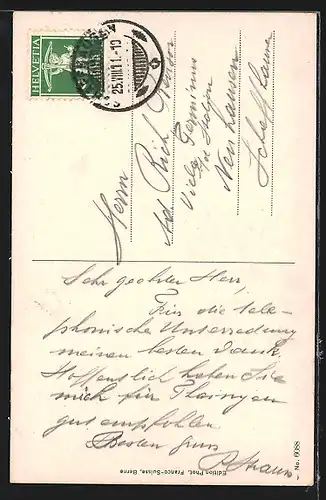 HELVETIA
25.VIII.11.-10
Herrn
Ad. Rich
Villa Germinus
Neuhausen
Schaffhausen
Sehr geehrter Herr,
Für die tele-
phonische Unterredung
meinen besten Dank.
Hoffentlich haben Sie
mich für Thaingen
gut empfohlen.
Besten Gruss
Edition Phot. Franco-Suisse, Berne
No. 6088